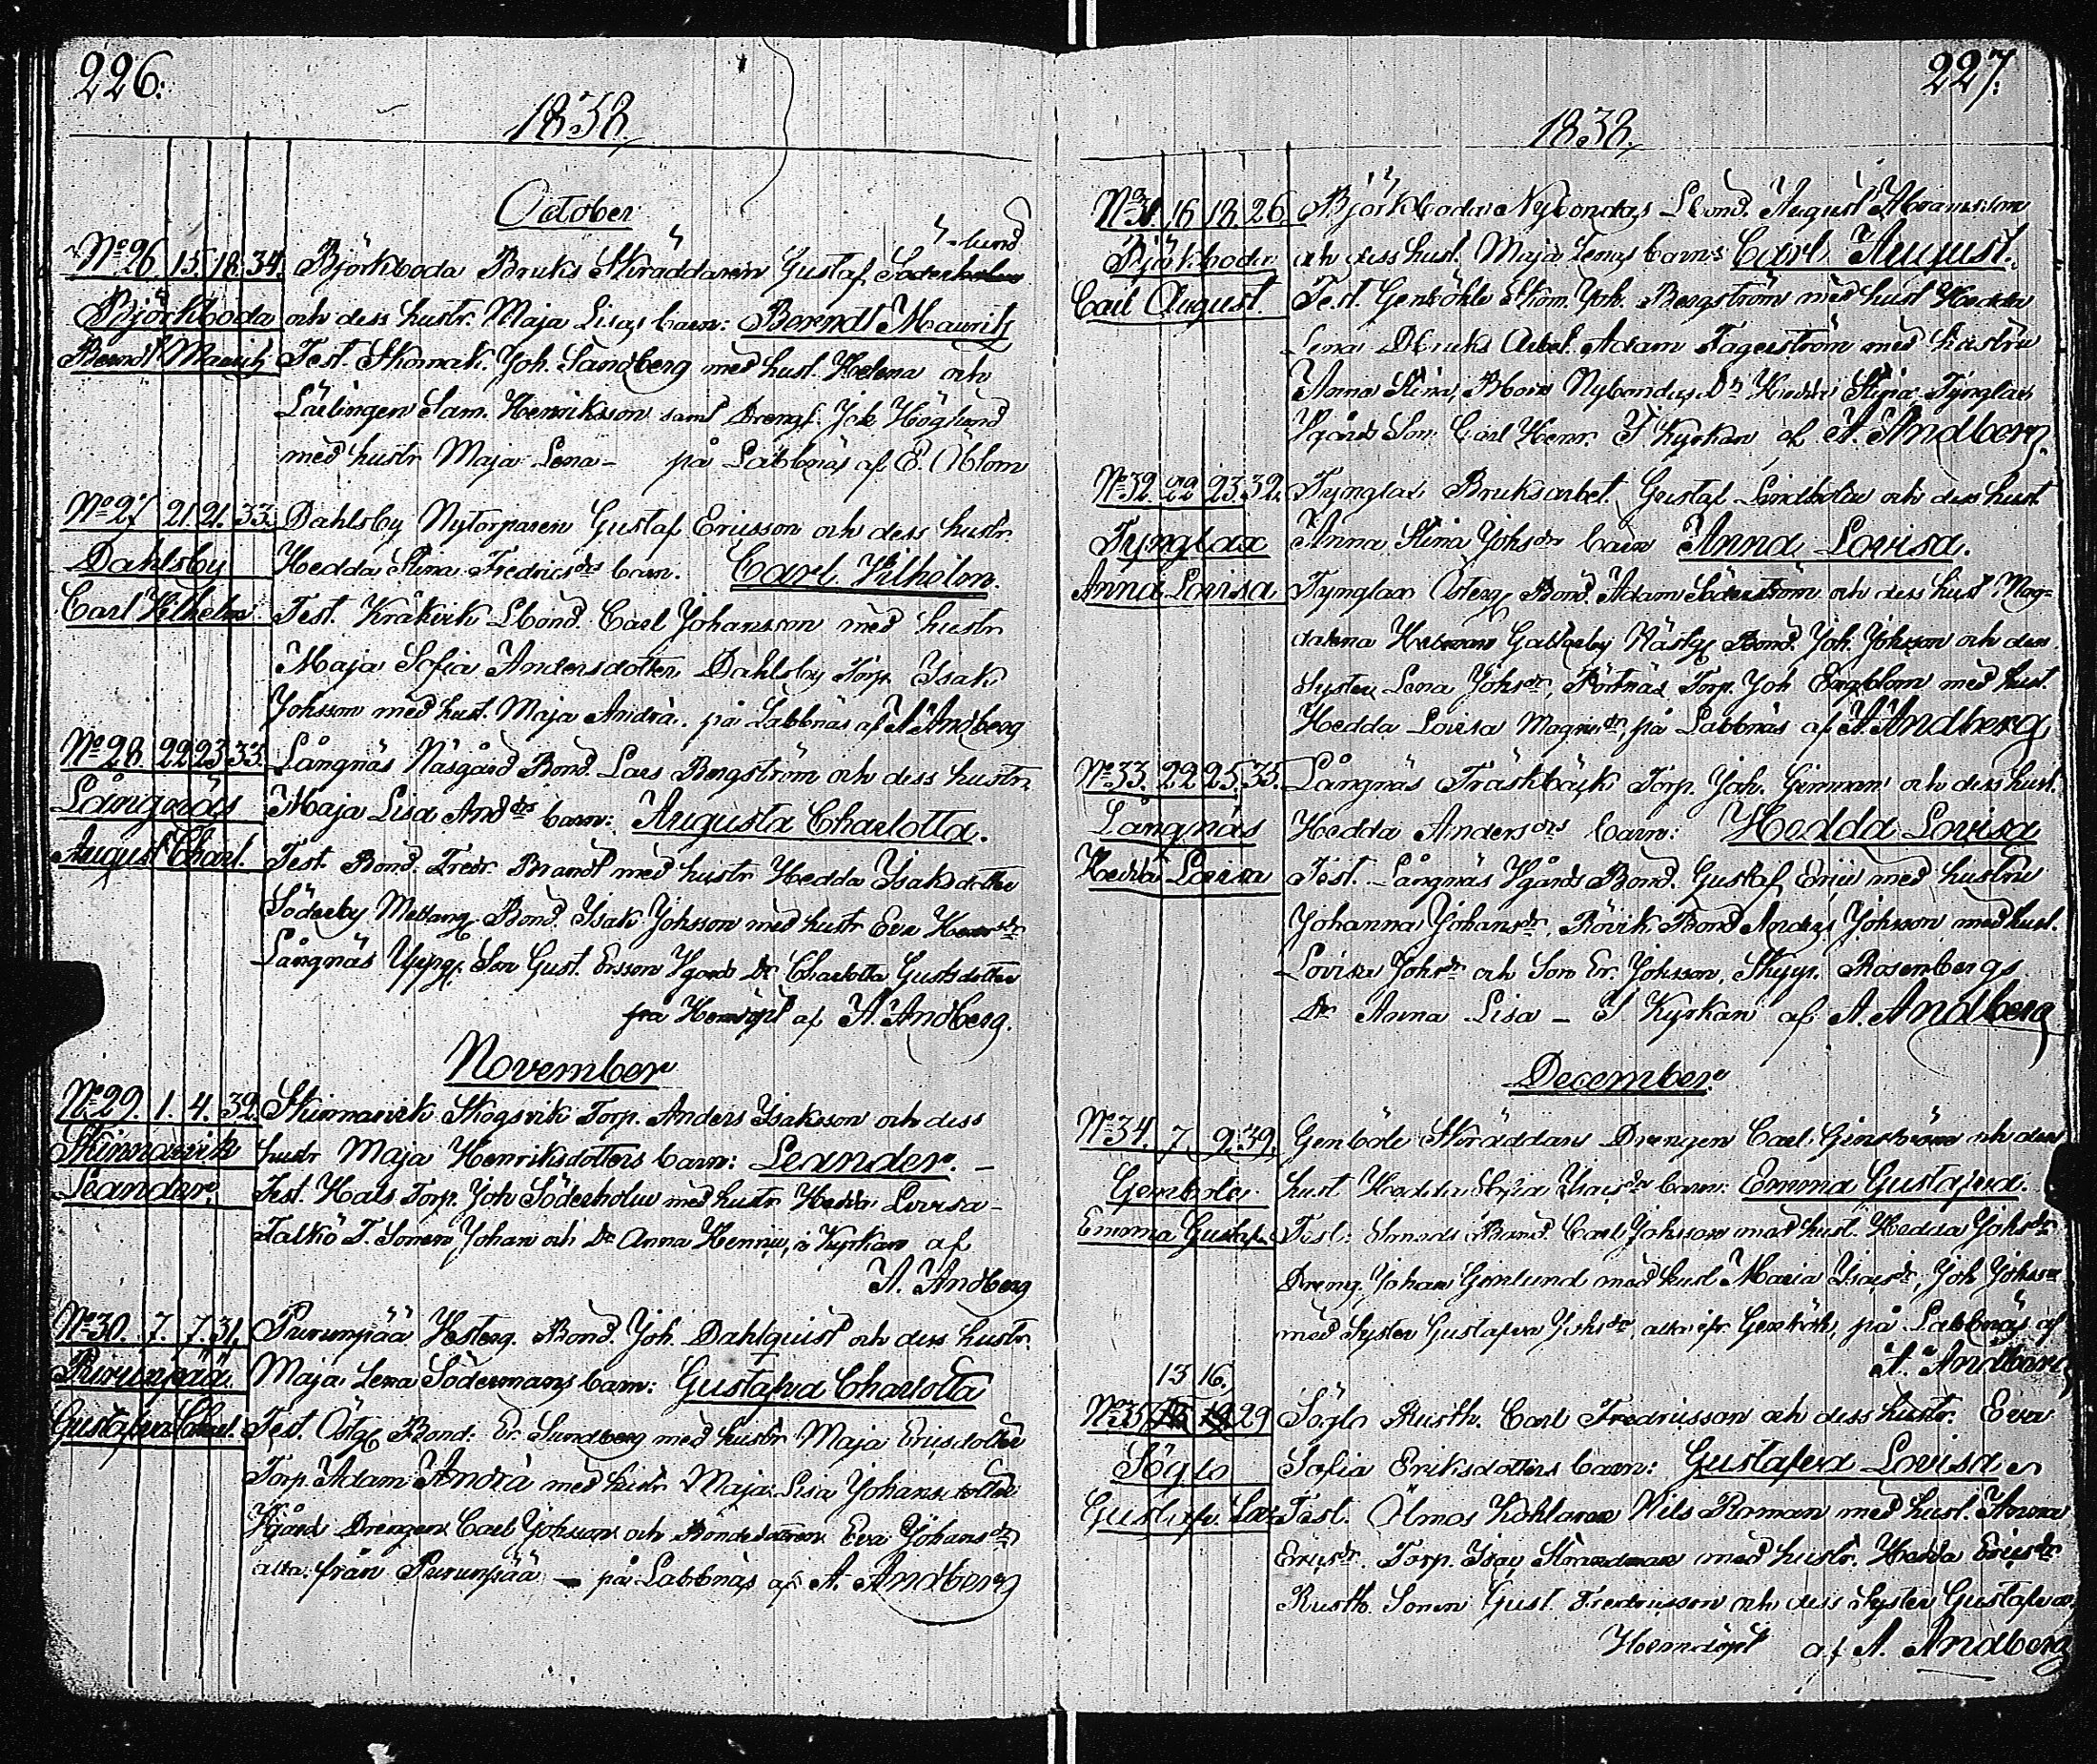 226.
1838.
October
Nº 26. 15. 18. 34. Björkboda Bruks Skräddaren Gustaf Söderholm -lund
Björkboda och dess hustr. Maja Lisas barn: Berndt Mauritz
Berndt Mauritz Test. Skomak. Joh. Sandberg med hust. Helena och
Lärlingen Sam. Henriksson samt Drengf. Joh. Höglund
med hustr Maja Lena - på Labbnäs af E. Öblom
Nº 27 21. 21. 33. Dahlsby Nytorparen Gustaf Ericsson och dess hustr
Dahlsby Hedda Stina Fredricsdrs barn. Carl Vilhelm.
Carl Vilhelm. Test. Kråkvik Lbond. Carl Johansson med hustr
Maja Sofia Andersdotter, Dahlsby Torp. Isak
Johsson med hust. Maja Andrà. på Labbnäs af A Andberg
Nº 28. 22 23 33. Långnäs Näsgård Bond. Lars Bergström och dess hustr.
Långnäs Maja Lisa Anddrs barn: Augusta Charlotta.
August. Charl. Test. Bond. Fredr. Brandt med hustr Hedda Isaksdotter
Söderby Mellang. Bond. Isak Johsson med hustr Eva
Långnäs Uppg. Son Gust. Ersson Dr Charlotta Gustsdotter
af A. Andberg.
November
Nº 29. 1. 4. 32. Skinnarvik Skogsvik Torp. Anders Isaksson och dess
Skinnarvik hustr Maja Henriksdotters barn: Leander. -
Leander. Test. Hals Torp. Joh Söderholm med hustr Hedda Lovisa -
Falkö T. Sonen Johan och Dr Anna i Kyrkan af
A. Andberg
Nº 30. 7. 7. 31. Purunpää Vesterg. Bond. Joh. Dahlquist och dess hustr.
Purunpää. Maja Lena Södermans barn: Gustafva Charlotta
Gustafva Charl. Test. Östg. Bond. Er. Sundberg med hustr Maja Ericsdotter
Torp. Adam Andrà med hustr Maja Lisa Johansdotter
Drengen Carl Johsson och Bondedottren Eva Johansdr
alla från Purunpää - på Labbnäs af A. Andberg
227.
1838.
Nº 31. 16 18. 26. Björkboda Nybondas Lbond. August Abramsson
Björkboda och dess hust. Maja Lenas barn: Carl August.
Carl August. Test. Genböhle Skom. Joh. Bergström med hust Hedda
Lena Bruks Arbet. Adam Fagerström med hustru
Anna Stina, Nybondas Dr Hedda Stina Tynglax
Son Carl Henr. I Kyrkan af A. Andberg.
Nº 32. 23. 32. Tynglax Bruksarbet. Gustaf Lindholm och dess hust
Tynglax Anna Stina Johsdrs barn Anna Lovisa.
Anna Lovisa Tynglax Österg. Bond. Adam Söderström och dess hust Mag-
dalena Galtarby Västg. Bond. Joh. Johsson och dess
Syster Lena Johsdr, Torp. Joh Engblom med hust.
Hedda Lovisa Magnusdr, på Labbnäs af A. Andberg
Nº 33. 22 25. 35. Långnäs Träskbäck Torp. Joh. Ginman och dess hust.
Långnäs Hedda Andersdrs barn: Hedda Lovisa
Hedda Lovisa Test. Långnäs Bond. Gustaf Eric med hustru
Johanna Johansdr, Rövik Bond Anders Johsson med hust.
Lovisa Johsdr och Son Er. Johsson, Rosenbergs
Dr Anna Lisa - I Kyrkan af A. Andberg
December
Nº 34. 7 9. 39. Genböle Skräddars Drengen Carl Genström och dess
Genböle hust Hedda Sofia Isacsdr barn: Emma Gustafva.
Emma Gustafva Test: Bond. Carl Johsson med hust. Hedda Johsdr
Dreng. Johan Genlund med hust Maria Isacsdr, Joh Johsson
med Syster Gustafva Johsdr, alla ifr. Genböle, på Labbnäs af
A. Andberg
13 16.
Nº 35. 29 Söglo Rusth. Carl Fredriksson och dess hustr. Eva
Söglo Sofia Eriksdotters barn: Gustafva Lovisa
Gustafv. Lov. Test. Ölmos Kohlaren Nils Roman med hust. Anna
Ericsdr. Torp. Isac med hustr. Hedda Ericsdr
Rusth. Sonen Gust. Fredricsson och dess Syster Gustafva
Hemdöpt af A. Andberg